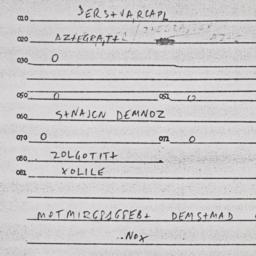 010 SERS+VARCAPL
020 AZ+EGRAT+
030 O
050 O 051 O
060 S+NAJCN DEMNOZ
070 O 071 O
080 ZOLGOTIT+
081 XOLILE
MOTMIRGSSGSEB+ DEMS+MAD O
..Nox